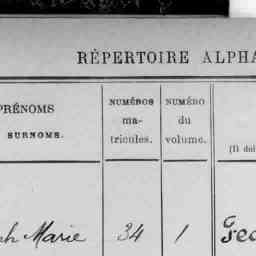 RÉPERTOIRE ALPHA
PRÉNOMS
SURNOMS.
NUMÉROS
ma-
tricules.
NUMÉRO
du
volume.
(Il dé
ph Marie 34 1